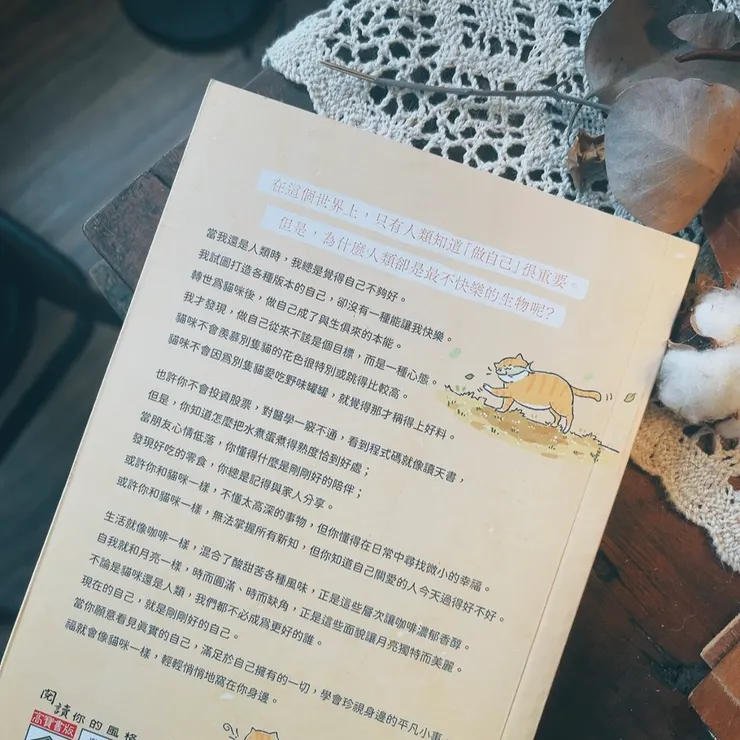 在這個世界上，只有人類知道「做自己」很重要。
但是，為什麼人類卻是最不快樂的生物呢？
當我還是人類時，我總是覺得自己不夠好。
我試圖打造各種版本的自己，卻沒有一種能讓我快樂。
轉世為貓咪後，做自己成了與生俱來的本能。
我才發現，做自己從來不該是個目標，而是一種心態。
貓咪不會羨慕別隻貓的花色很特別或跳得比較高。
貓咪不會因為別隻貓愛吃野味罐罐，就覺得那才稱得上好料。
也許你不會投資股票，對醫學一竅不通，看到程式碼就像讀天書，
但是，你知道怎麼把水煮蛋煮得熟度恰到好處；
當朋友心情低落，你懂得什麼是剛剛好的陪伴；
發現好吃的零食，你總是記得與家人分享。
或許你和貓咪一樣，不懂太高深的事物，但你懂得在日常中尋找微小的幸福。
或許你和貓咪一樣，無法掌握所有新知，但你知道自己關愛的人今天過得好不好。
生活就像咖啡一樣，混合了酸甜苦各種風味，正是這些層次讓咖啡濃郁香醇。
自我就和月亮一樣，時而圓滿、時而缺角，正是這些面貌讓月亮獨特而美麗。
不論是貓咪還是人類，我們都不必成為更好的誰。
現在的自己，就是剛剛好的自己。
當你願意看見真實的自己，滿足於自己擁有的一切，學會珍視身邊的平凡小事，
福就會像貓咪一樣，輕輕悄悄地窩在你身邊。
閱讀你的風格
高寶書版